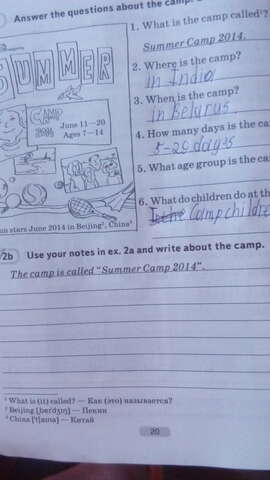 Answer the questions about the camp.
1. What is the camp called¹?
Summer Camp 2014.
2. Where is the camp?
in India
3. When is the camp?
in Belarus
4. How many days is the ca
5-20 days
5. What age group is the ca
6. What do children do at th
Camp childre
SUMMER
CAMP
2014
June 11—20
Ages 7—14
un stars June 2014 in Beijing², China³
2b Use your notes in ex. 2a and write about the camp.
The camp is called "Summer Camp 2014".
¹ What is (it) called? — Как (это) называется?
² Beijing — Пекин
³ China — Китай
20